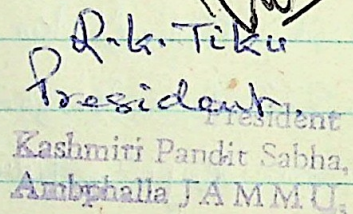 R.K. Tiku
President.
President
Kashmiri Pandit Sabha,
Ambphalla JAMMU.